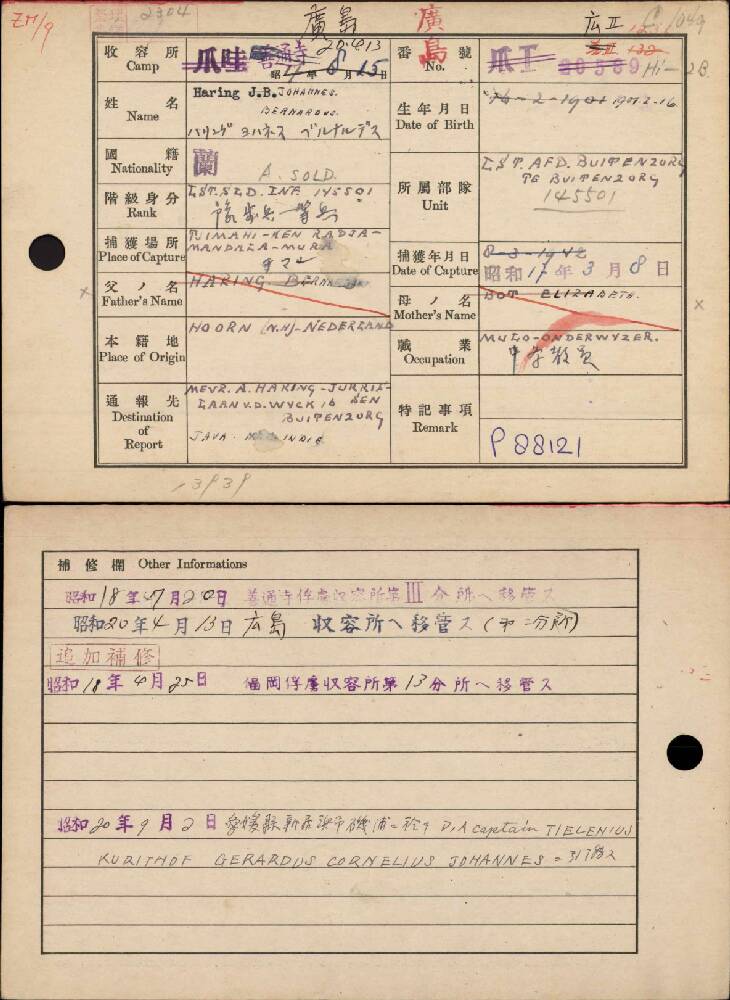 2304
廣島
20.4.13
廣島
広II
収容所 Camp
爪哇 善通寺
年 8月15日
番號 No.
爪I
20589 Hi-2B.
姓名 Name
Haring J.B. JOHANNES.
BERNARDUS.
ハリング ヨハネス ベルナルデス
生年月日 Date of Birth
16-2-1901 1901.2.16
國籍 Nationality
蘭
A. SOLD.
所屬部隊 Unit
LST. AFD. BUITENZORG
TE BUITENZORG
145501
階級身分 Rank
LST. SLD. INF. 145501
捕獲場所 Place of Capture
TJIMAHI-KEN RADJA-
MANDALA-MURA
捕獲年月日 Date of Capture
8-3-1942
昭和17年3月8日
父ノ名 Father's Name
HARING
母ノ名 Mother's Name
BOT ELIZABETH.
本籍地 Place of Origin
HOORN (N.H)-NEDERLAND
職業 Occupation
MULO-ONDERWYZER.
中学教員
通報先 Destination of Report
MEVR. A. HARING-JURRIE-
LAAN V.D. WYCK 16 SEN
BUITENZORG
JAVA
特記事項 Remark
P88121
13939
補修欄 Other Informations
昭和18年 7月20日 善通寺俘虜収容所第III分所ヘ移管ス
昭和20年4月13日 広島 収容所ヘ移管ス(第二分所)
追加補修
昭和18年4月25日 福岡俘虜収容所第13分所ヘ移管ス
昭和20年9月2日 愛媛縣新居浜市磯浦ニ於テ D.A captain TIELENIUS
KURITHOF GERARDUS CORNELIUS JOHANNES ニ引渡ス